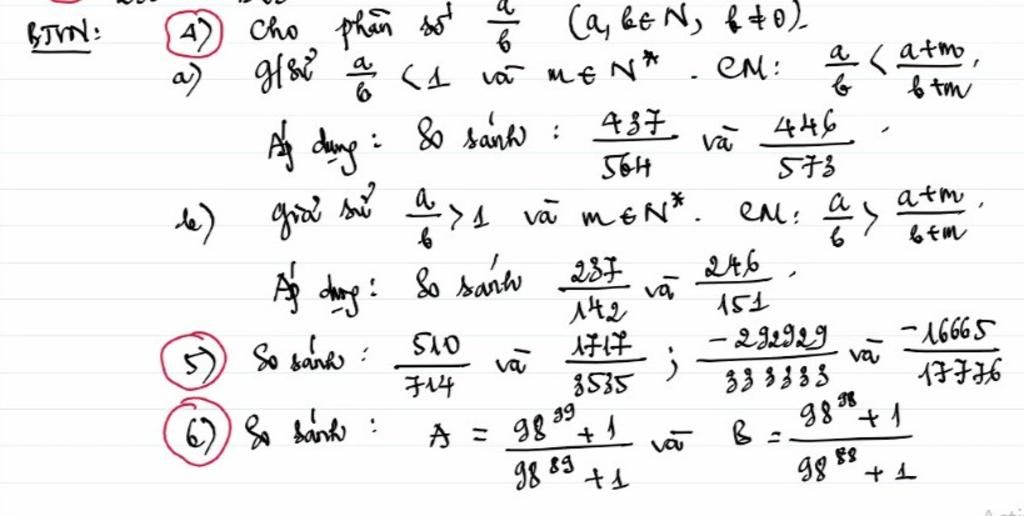 BTVN: 4) Cho phân số a/b (a, b ∈ N, b ≠ 0).
a) g/sử a/b < 1 và m ∈ N*. CM: a/b < (a+m)/(b+m).
Áp dụng: So sánh: 437/564 và 446/573.
b) giả sử a/b > 1 và m ∈ N*. CM: a/b > (a+m)/(b+m).
Áp dụng: So sánh 237/142 và 246/151.
5) So sánh: 510/714 và 1717/3535; -292929/333333 và -16665/17776
6) So sánh: A = (98^99 + 1)/(98^89 + 1) và B = (98^98 + 1)/(98^88 + 1)